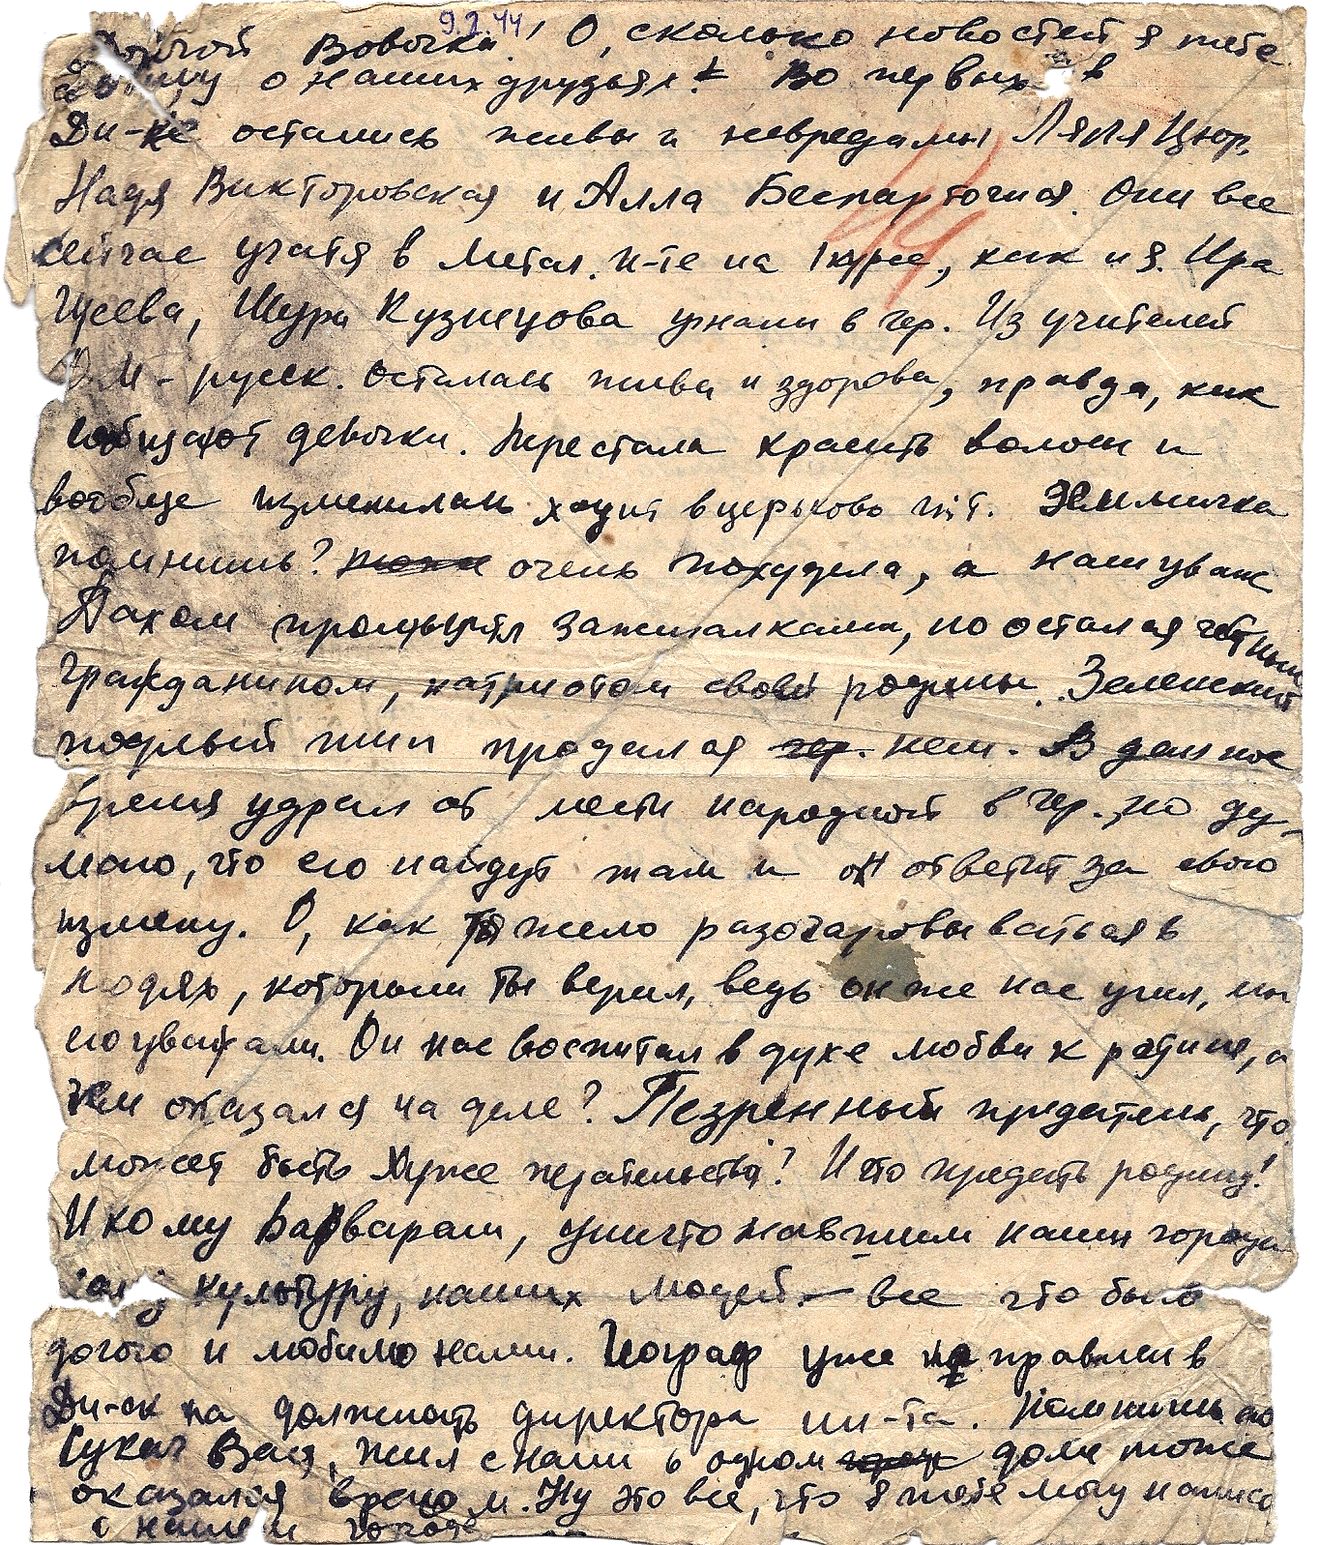 9.2.44
Дорогой Вовочка! О, сколько новостей я тебе
сообщу о наших друзьях! Во первых в
Дн-ке остались живы и невредимы Ляля Цюр,
Надя Викторовская и Алла Беспарточная. Они все
сейчас учатся в Метал. и-те на 1 курсе, как и я. Ира
Гусева, Шура Кузнецова угнали в гер. Из учителей
русск. осталась жива и здорова, правда, как
сообщают девочки. Перестала красить волосы и
вообще изменилась ходит в церьковь и т.
помнишь? очень похудела, а наш уваж
Пахом промышлял зажигалками, но остался честным
гражданином, патриотом своей родины. Зеленский
подлый тип продался гер. нем. В данное
время удрал от мести народной в гер., но ду-
маю, что его найдут там и он ответит за свою
измену. О, как тяжело разочаровываться в
людях, которым ты верил, ведь он же нас учил, мы
его уважали. Он нас воспитал в духе любви к родине, а
кем оказался на деле? Презренный предатель, что
может быть хуже предательства? И кто предать родину!
И кому варварам, уничтожавшим наши города
культуру, наших людей — все что было
дорого и любимо нами. Географ уже направлен в
Дн-ск на должность директора ин-та. Помнишь
Сукач Вася, жил с нами в одном доме тоже
оказался врагом. Ну это все, что я тебе могу написа
о нашем городе
44